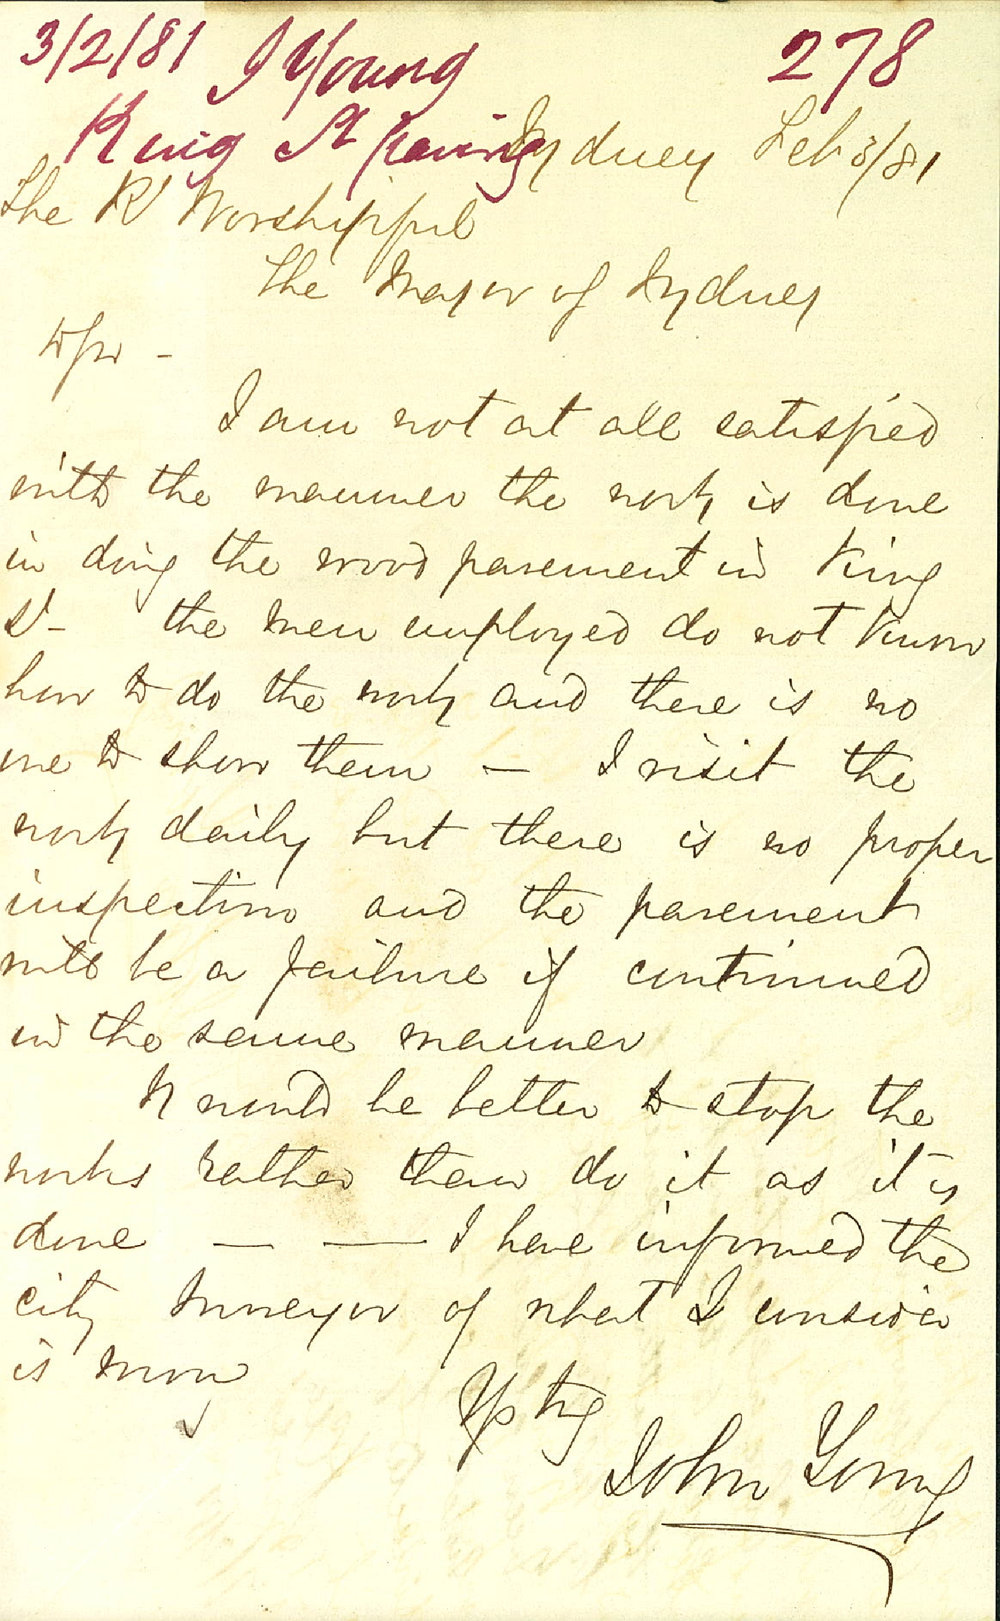 3/2/81 J Young 278
King St paving
Sydney Feb 3/81
The Rt Worshipful
The Mayor of Sydney
D Sir -
I am not at all satisfied
with the manner the work is done
in doing the wood pavement in King
St - the men employed do not know
how to do the work and there is no
one to show them - I visit the
work daily but there is no proper
inspection and the pavement
will be a failure if continued
in the same manner
It would be better to stop the
works rather than do it as it is
done — — I have informed the
city surveyor of what I consider
is wrong
Yrs try
John Young